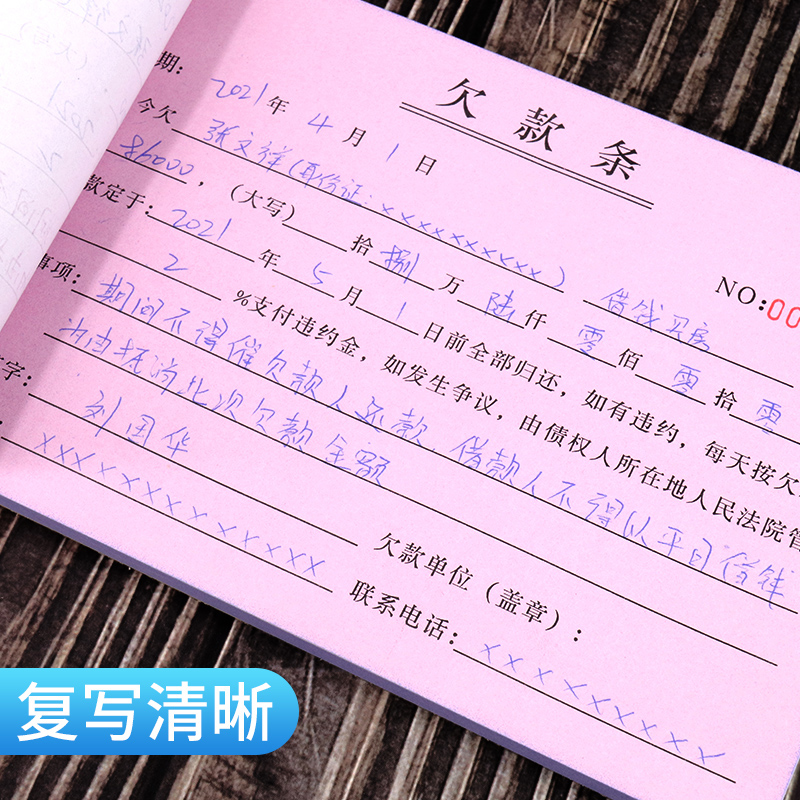 欠款条
NO:00
期: 2021 年 4 月 1 日
今欠 张文祥(身份证: xxxxxxxxxx) 借钱买房
86000 ,(大写) 拾 捌 万 陆 仟 零 佰 零 拾 零
款定于: 2021 年 5 月 1 日前全部归还,如有违约,每天按欠
2 %支付违约金,如发生争议,由债权人所在地人民法院管
事项: 期间不得催欠款人还款,借款人不得以平日借钱
为由抵消此次欠款金额
字: 刘国华
欠款单位(盖章):
: xxxxxxxxxxxxx
联系电话: xxxxxxxxx
复写清晰